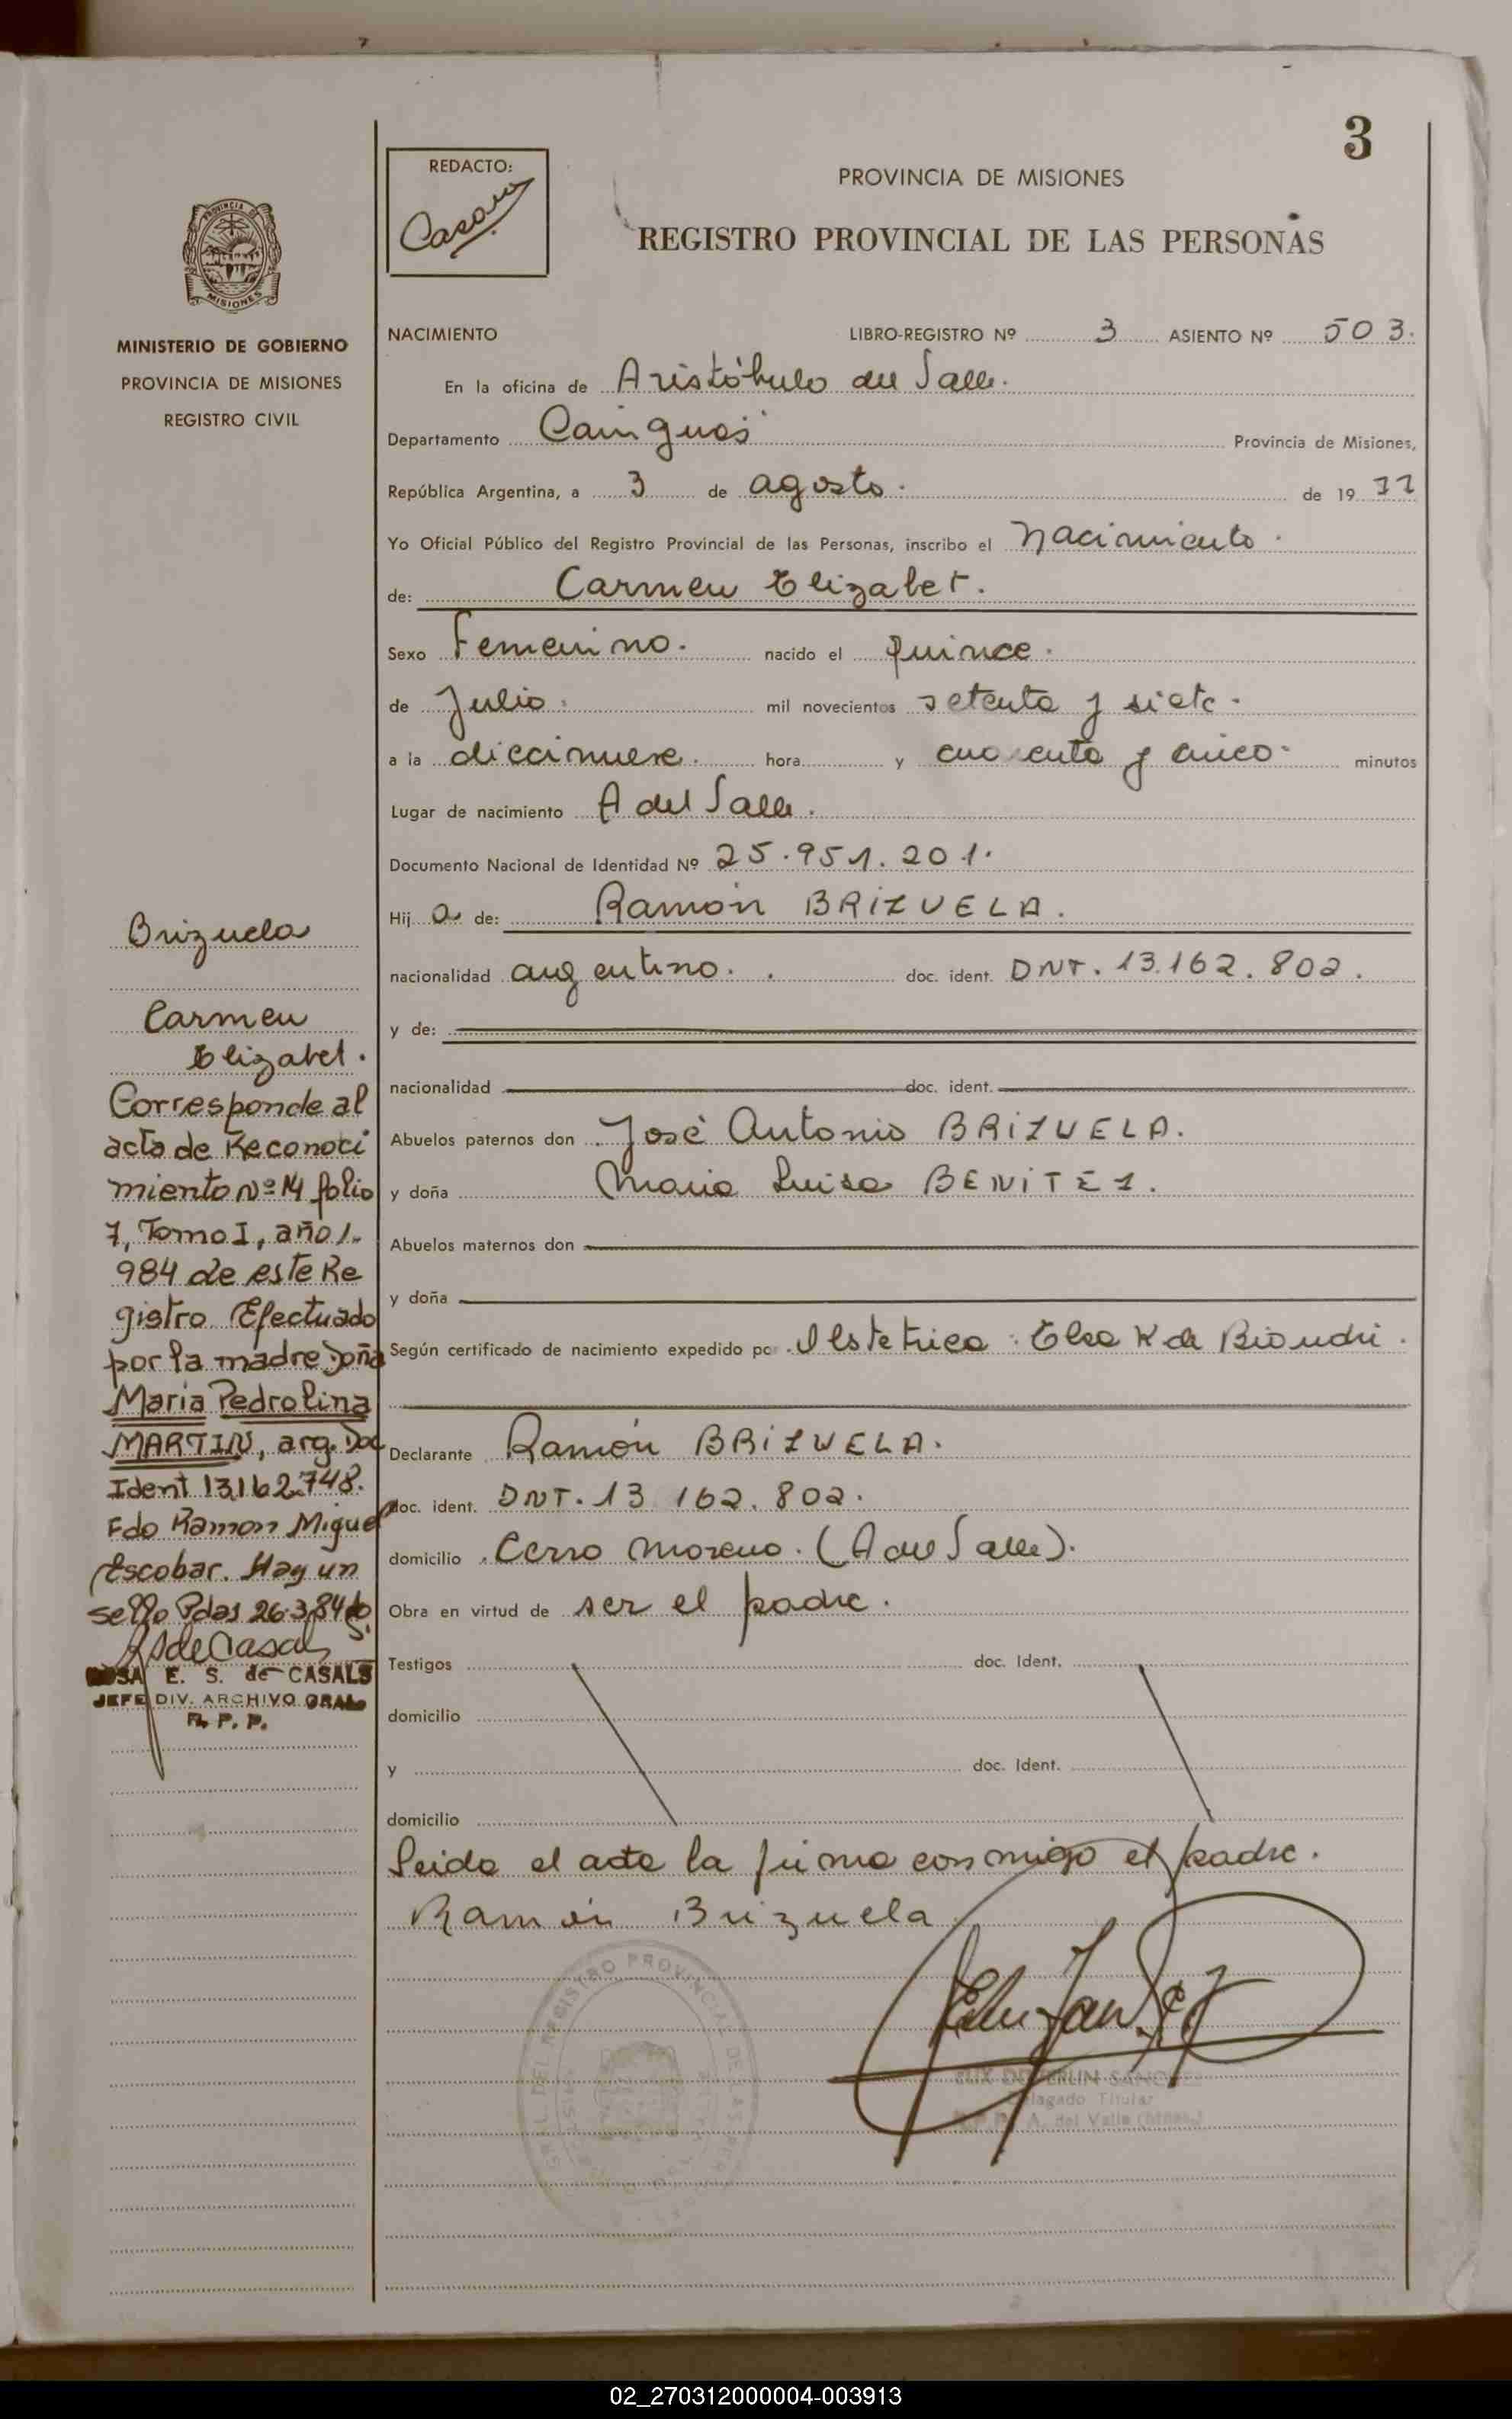 3
REDACTO:
Casan
PROVINCIA DE MISIONES
REGISTRO PROVINCIAL DE LAS PERSONAS
PROVINCIA DE
MISIONES
MINISTERIO DE GOBIERNO
PROVINCIA DE MISIONES
REGISTRO CIVIL
NACIMIENTO LIBRO-REGISTRO Nº 3 ASIENTO Nº 503.
En la oficina de Aristóbulo del Valle.
Departamento Cainguás Provincia de Misiones,
República Argentina, a 3 de agosto. de 19 77
Yo Oficial Público del Registro Provincial de las Personas, inscribo el nacimiento.
de: Carmen Elizabet.
Sexo Femenino. nacido el quince.
de Julio. mil novecientos setenta y siete.
a la diecinueve. hora y cuarenta y cinco. minutos
Lugar de nacimiento A del Valle.
Documento Nacional de Identidad Nº 25.951.201.
Hij a de: Ramón BRIZUELA.
nacionalidad argentino. doc. ident. DNT. 13.162.802.
y de:
nacionalidad doc. ident.
Abuelos paternos don José Antonio BRIZUELA.
y doña Maria Luisa BENITEZ.
Abuelos maternos don
y doña
Según certificado de nacimiento expedido por Obstetrica: Elsa K de Biondri.
Declarante Ramón BRIZUELA.
doc. ident. DNT. 13 162.802.
domicilio Cerro Moreno. (A del Valle).
Obra en virtud de ser el padre.
Testigos doc. Ident.
domicilio
y doc. Ident.
domicilio
Leida el acta la firma conmigo el padre.
Ramón Brizuela
Brizuela
Carmen
Elizabet.
Corresponde al
acta de Reconoci
miento Nº 14 folio
7, Tomo I, año 1.
984 de este Re
gistro. Efectuado
por la madre Doña
Maria Pedrolina
MARTIN, arg. Doc
Ident 13.162.748.
Fdo Ramon Miguel
Escobar. Hay un
sello Pdas 26.3.84
RSdeCasals
ROSA E. S. de CASALS
JEFE DIV. ARCHIVO GRAL.
R. P. P.
DEL REGISTRO PROVINCIAL DE LAS PERSONAS
SANCHEZ
Delegado Titular
A. del Valle (Mnes.)
02_270312000004-003913